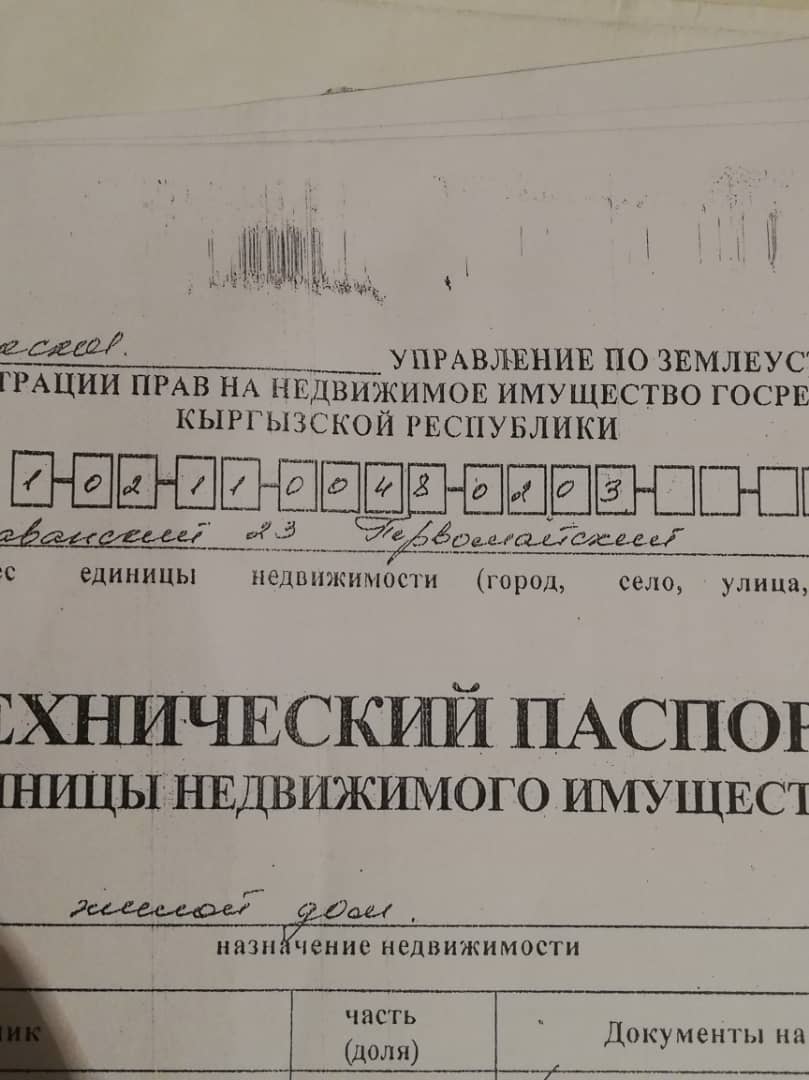 УПРАВЛЕНИЕ ПО ЗЕМЛЕУС
ТРАЦИИ ПРАВ НА НЕДВИЖИМОЕ ИМУЩЕСТВО ГОСРЕ
КЫРГЫЗСКОЙ РЕСПУБЛИКИ
1-02-11-0048-0203-
аванский 23 Первомайский
ес единицы недвижимости (город, село, улица,
ЕХНИЧЕСКИЙ ПАСПОР
ИНИЦЫ НЕДВИЖИМОГО ИМУЩЕСТ
жилой дом.
назначение недвижимости
ик часть Документы на
(доля)